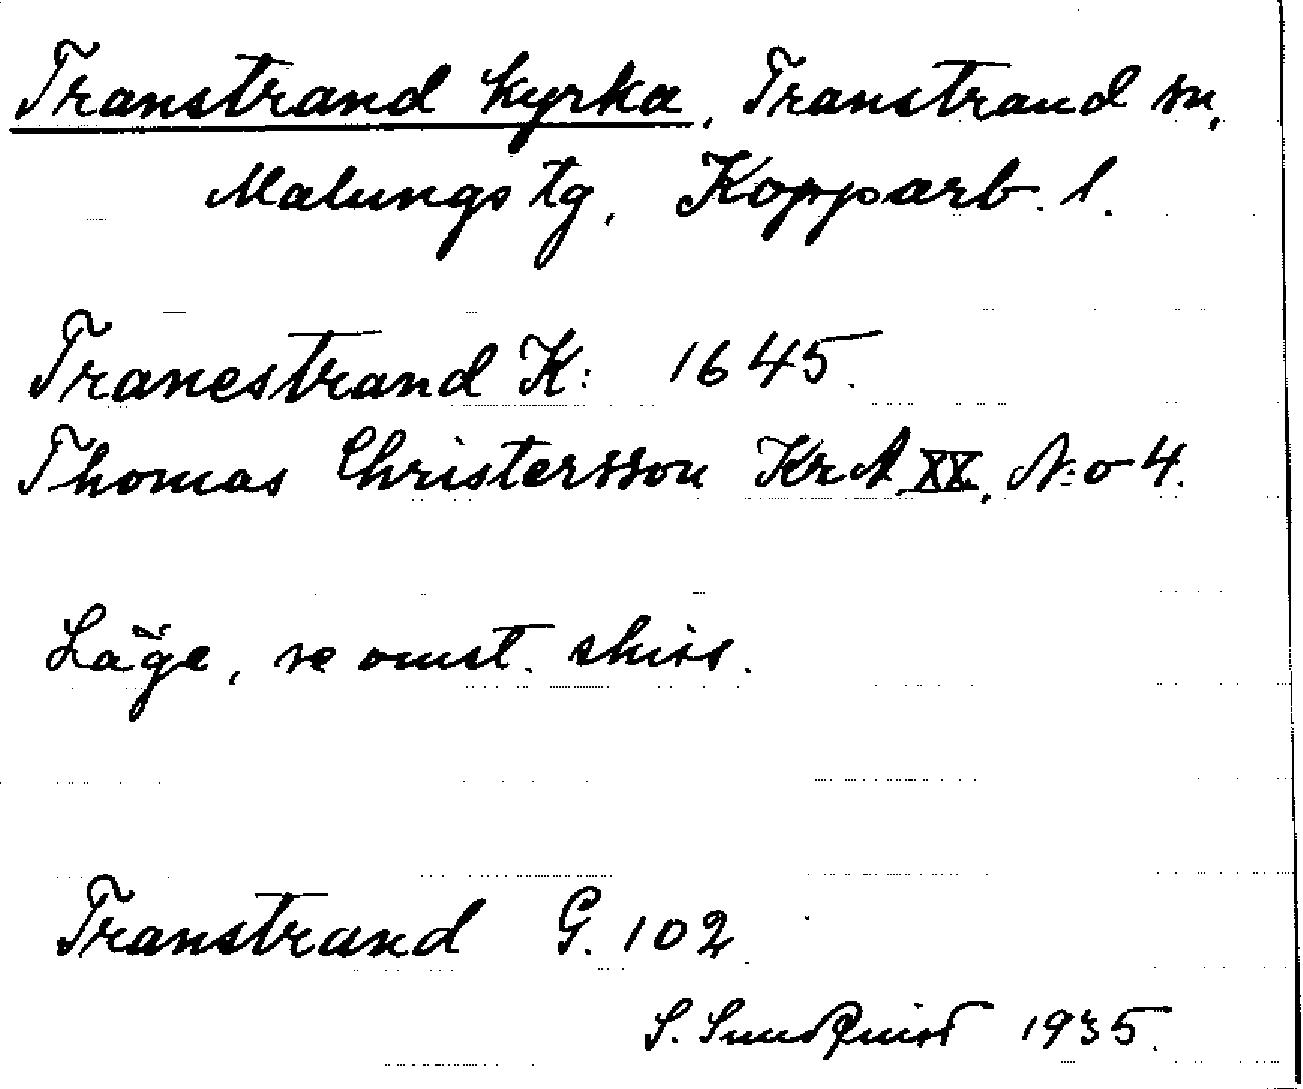 Transtrand kyrka, Transtrand sn,
Malungs tg, Kopparb. l.
Tranestrand K: 1645.
Thomas Christersson KrA XX, N:o 4.
Läge, se omst. skiss.
Transtrand G. 102.
S. Sundquist 1935.